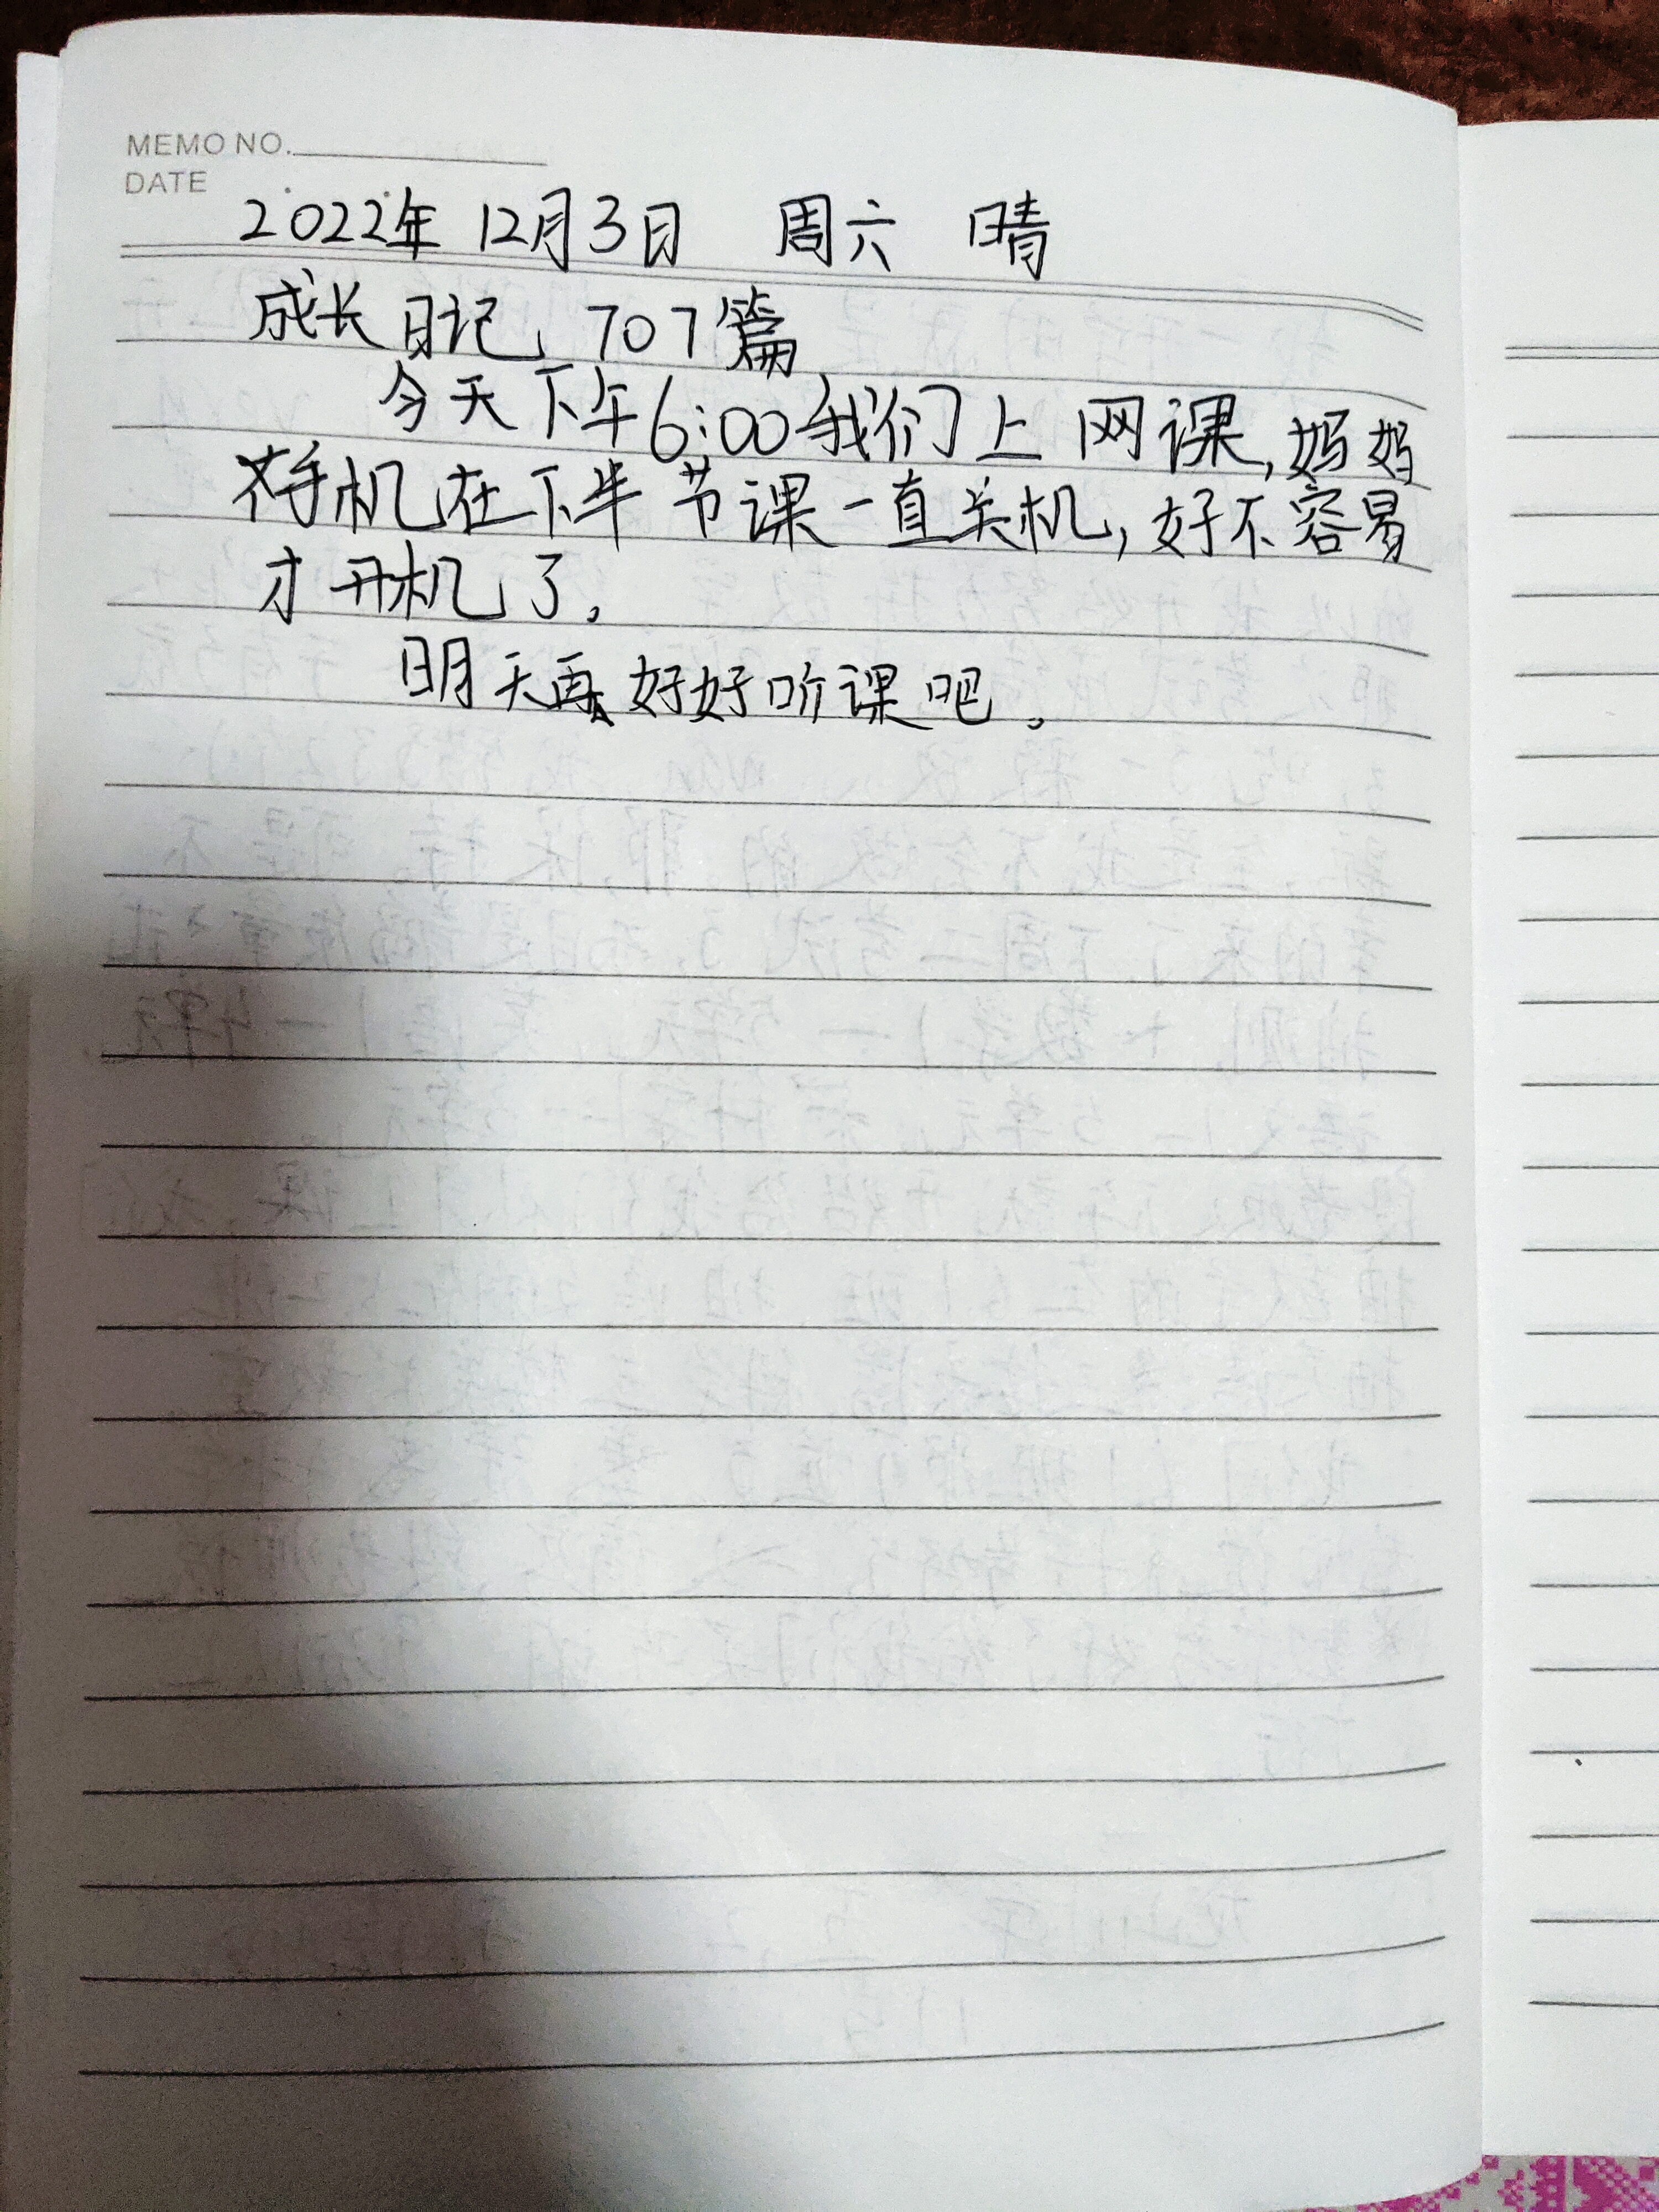 MEMO NO.
DATE
2022年 12月3日 周六 晴
成长日记、707篇
今天下午6:00我们上网课,妈妈
手机在下半节课一直关机,好不容易
才开机了。
明天再好好听课吧。